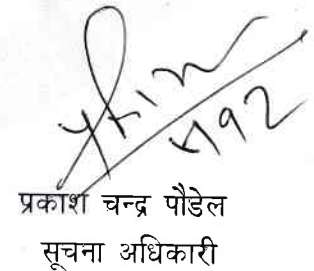 प्रकाश चन्द्र पौडेल
सूचना अधिकारी